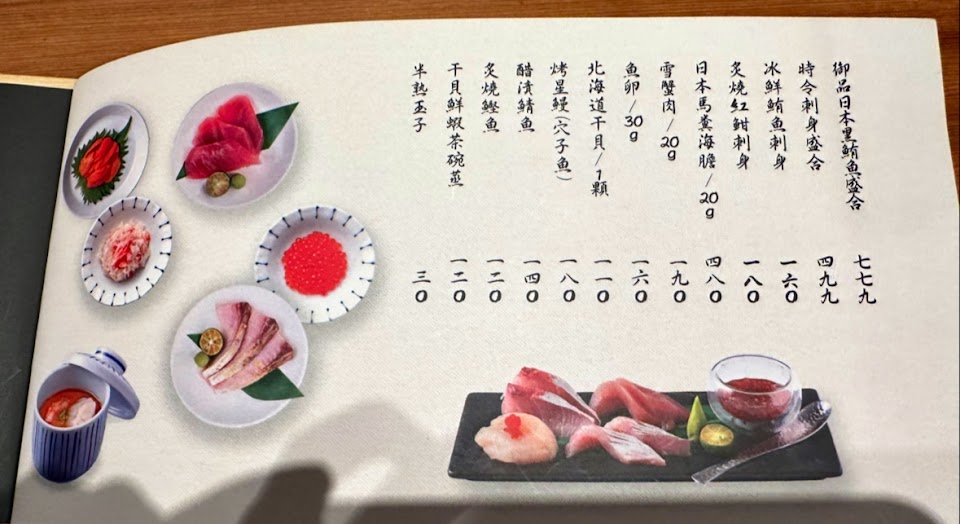 御品日本黑鮪魚盛合 七七九
時令刺身盛合 四九九
冰鮮鮪魚刺身 一六〇
炙燒紅魽刺身 一八〇
日本馬糞海膽/20g 四八〇
雪蟹肉/20g 一九〇
魚卵/30g 一六〇
北海道干貝/1顆 一一〇
烤星鰻(穴子魚) 一八〇
醋漬鯖魚 一四〇
炙燒鰹魚 一二〇
干貝鮮蝦茶碗蒸 一二〇
半熟玉子 三〇